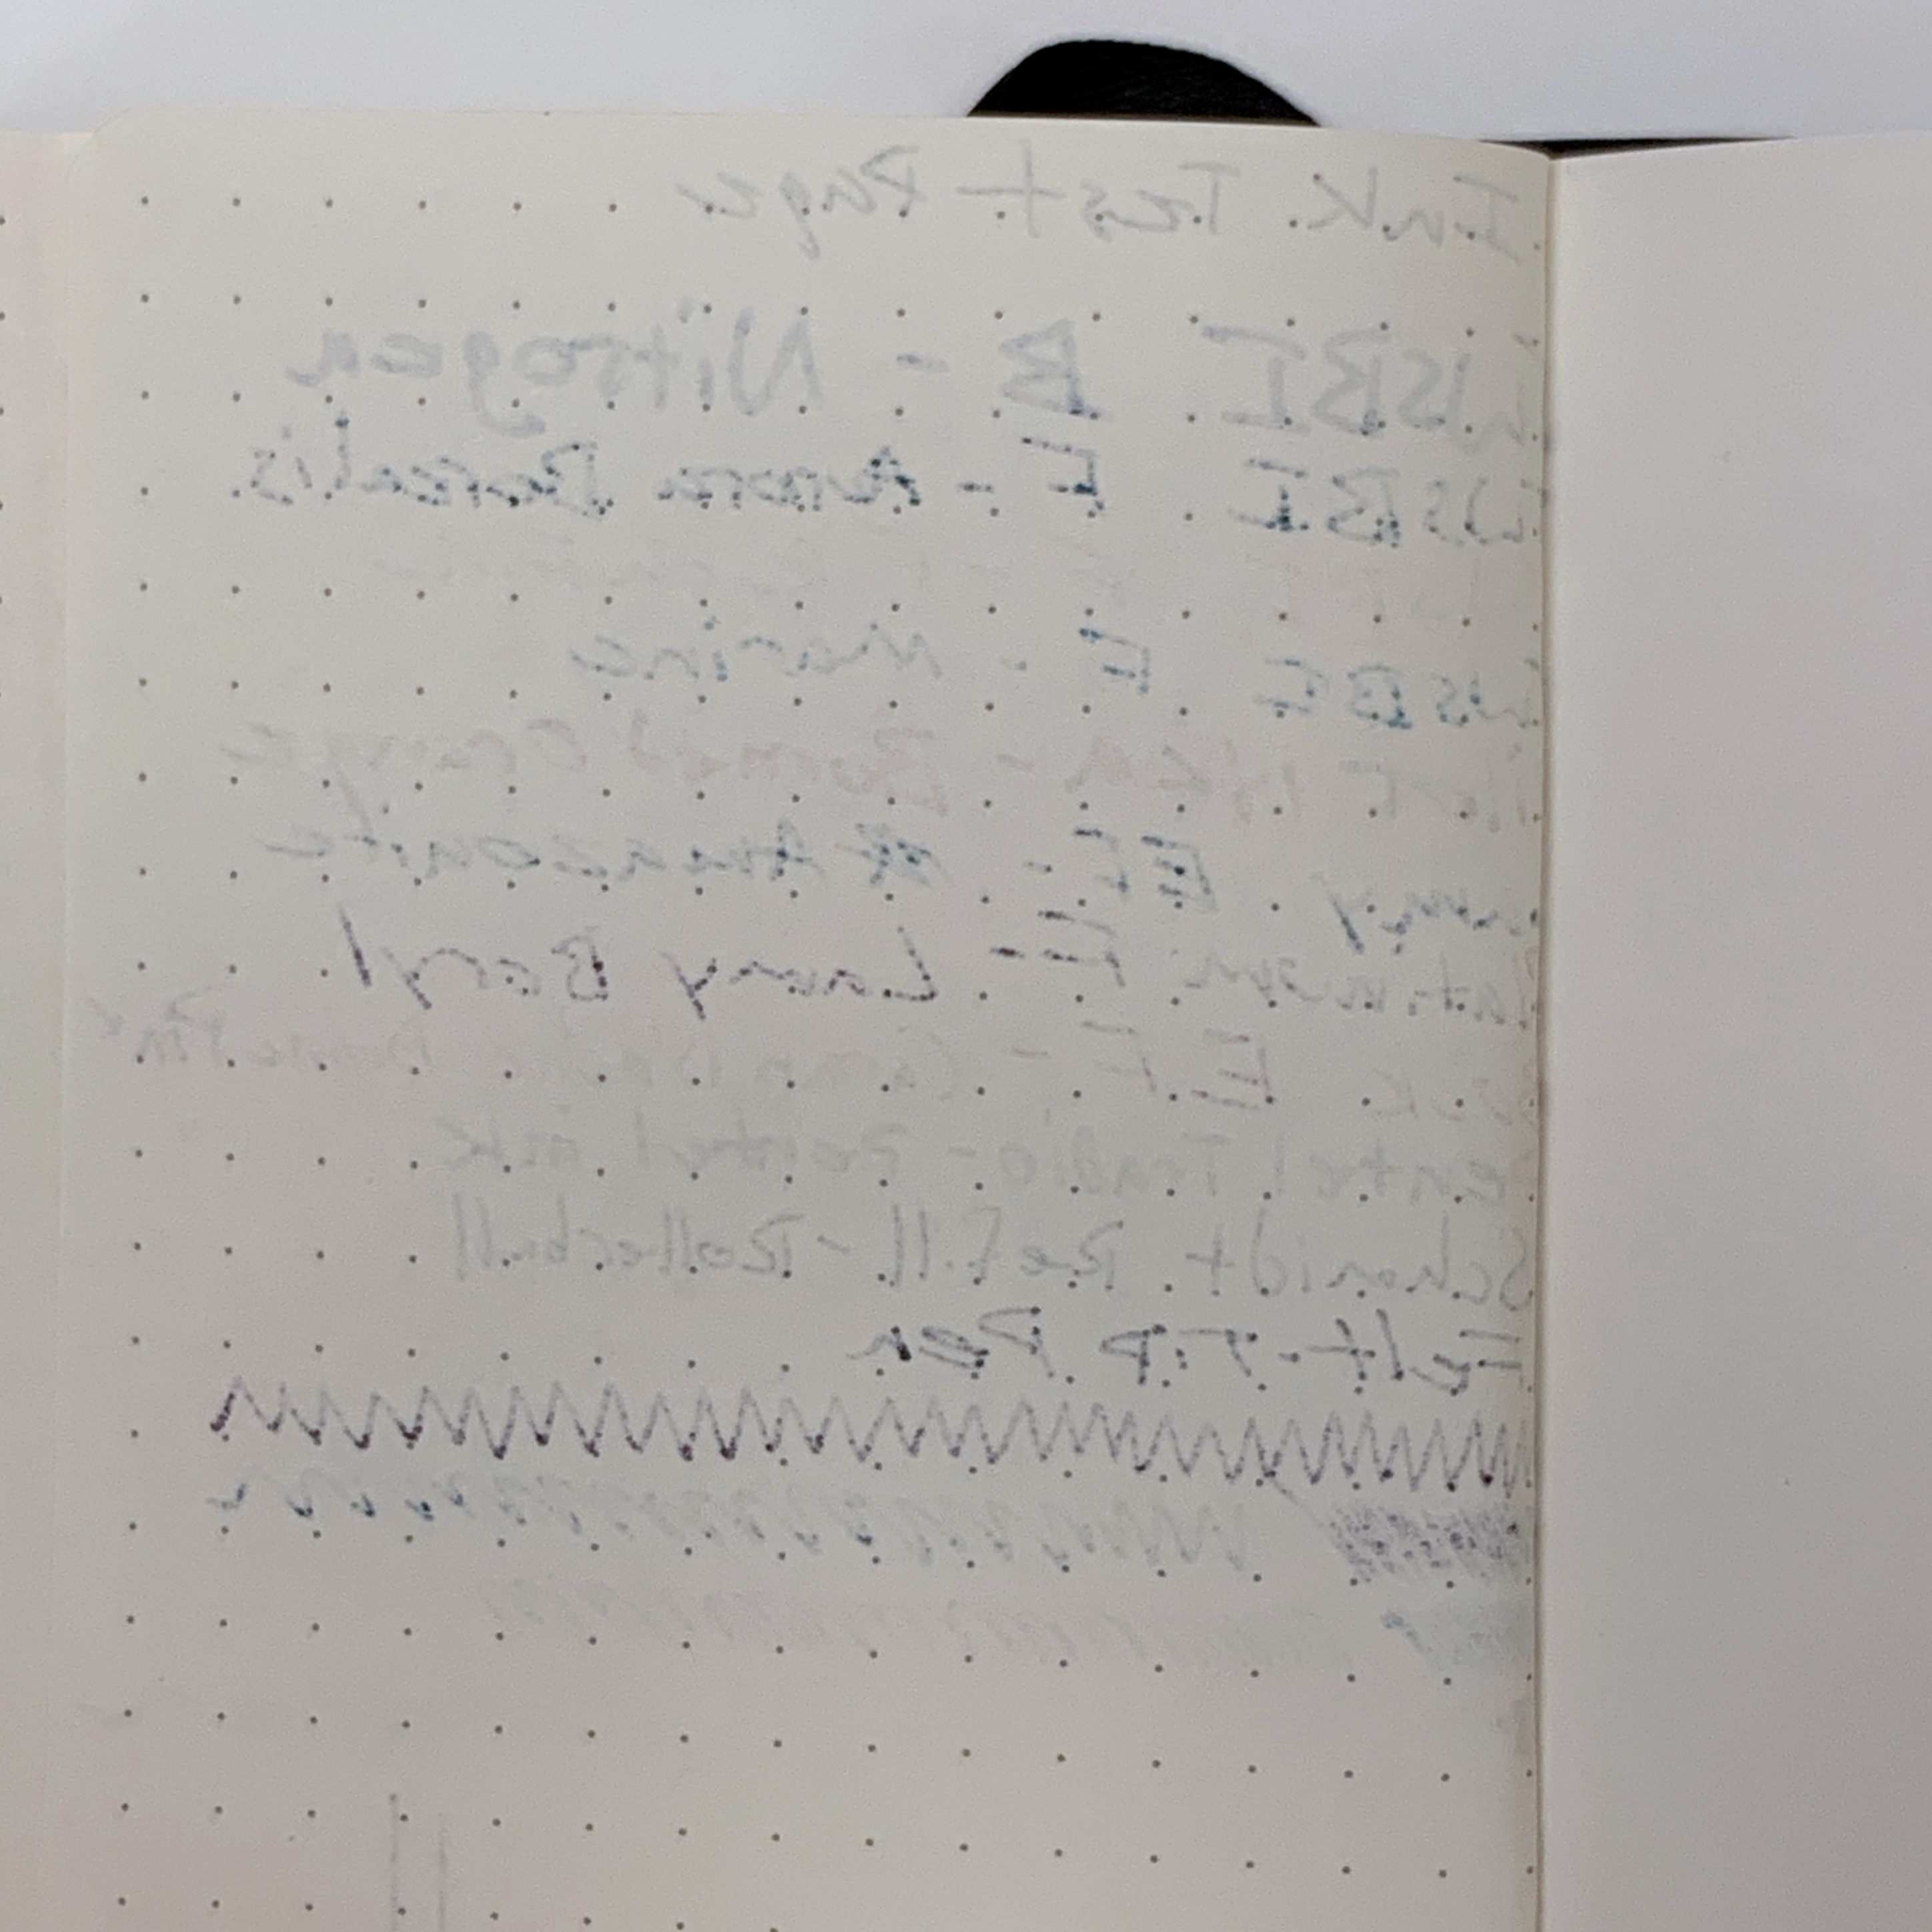 Ink Test Page
WSBI B - Nitrogen
WSBI F - Aurora Borealis
WSBI F - Marine
- Burned Orange
EF - Amazonite
Platinum F - Lamy Beryl
EF -
Pentel Tradio - Pentel ink
Schmidt Refill - Rollerball
Felt-Tip Pen